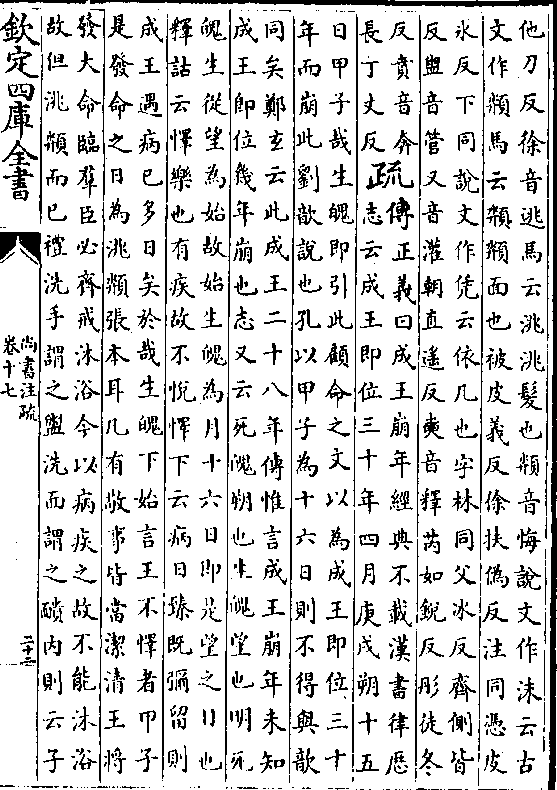 他刀反徐音逃馬云洮洮髪也頮音悔說文作沬云古
文作頮馬云頮頮面也被皮義反徐扶偽反注同憑皮
氷反下同說文作凭云依几也字林同父冰反齊側皆
反盥音管又音灌朝直遥反奭音釋芮如銳反彤徒冬
反賁音奔
長丁丈反
疏
傳正義曰成王崩年經典不載漢書律歷
志云成王即位三十年四月庚戌朔十五
日甲子哉生魄即引此顧命之文以為成王即位三十
年而崩此劉歆說也孔以甲子為十六日則不得與歆
同矣鄭玄云此成王二十八年傳惟言成王崩年未知
成王即位幾年崩也志又云死魄朔也生魄望也明死
魄生從望為始故始生魄為月十六日即是望之日也
釋詁云懌樂也有疾故不悅懌下云病日臻既彌留則
成王遇病已多日矣於哉生魄下始言王不懌者甲子
是發命之日為洮頮張本耳凡有敬事皆當潔清王將
發大命臨羣臣必齊戒沐浴今以病疾之故不能沐浴
故但洮頮而已禮洗手謂之盥洗面謂之靧内則云子
欽定四庫全書
尚書注疏
卷十七
二十三